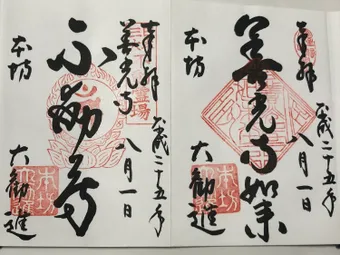 奉拝
平成二十五年
八月一日
善光寺如来
本坊
大勧進
奉拝
平成二十五年
八月一日
善光寺
不動尊
本坊
大勧進